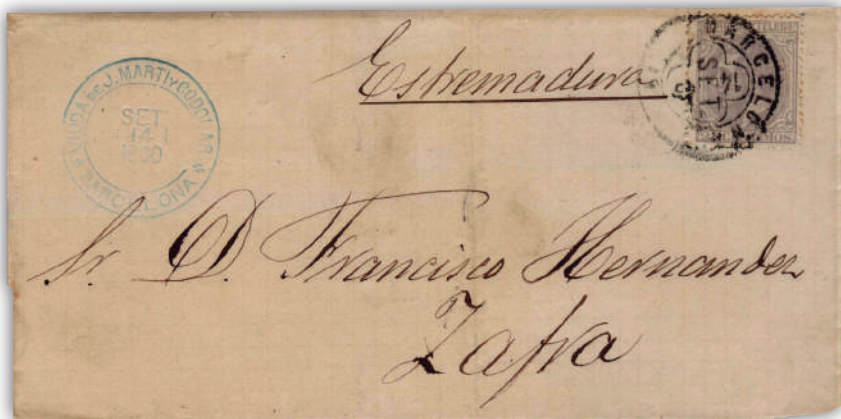 VIUDA DE J. MARTI Y CODOLAR
SET
14
BARCELONA
Estremadura
BARCELONA
14
SET
TELEGS
Sr. D. Francisco Hernandez
Zafra